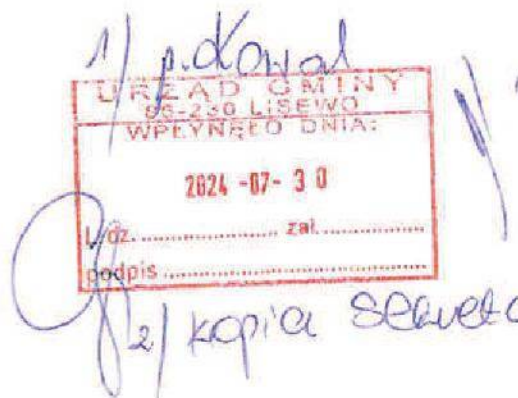 1/ p. Kowal
URZĄD GMINY
86-230 LISEWO
WPŁYNĘŁO DNIA:
2024 -07- 30
L.dz. zał.
podpis
2/ kopia